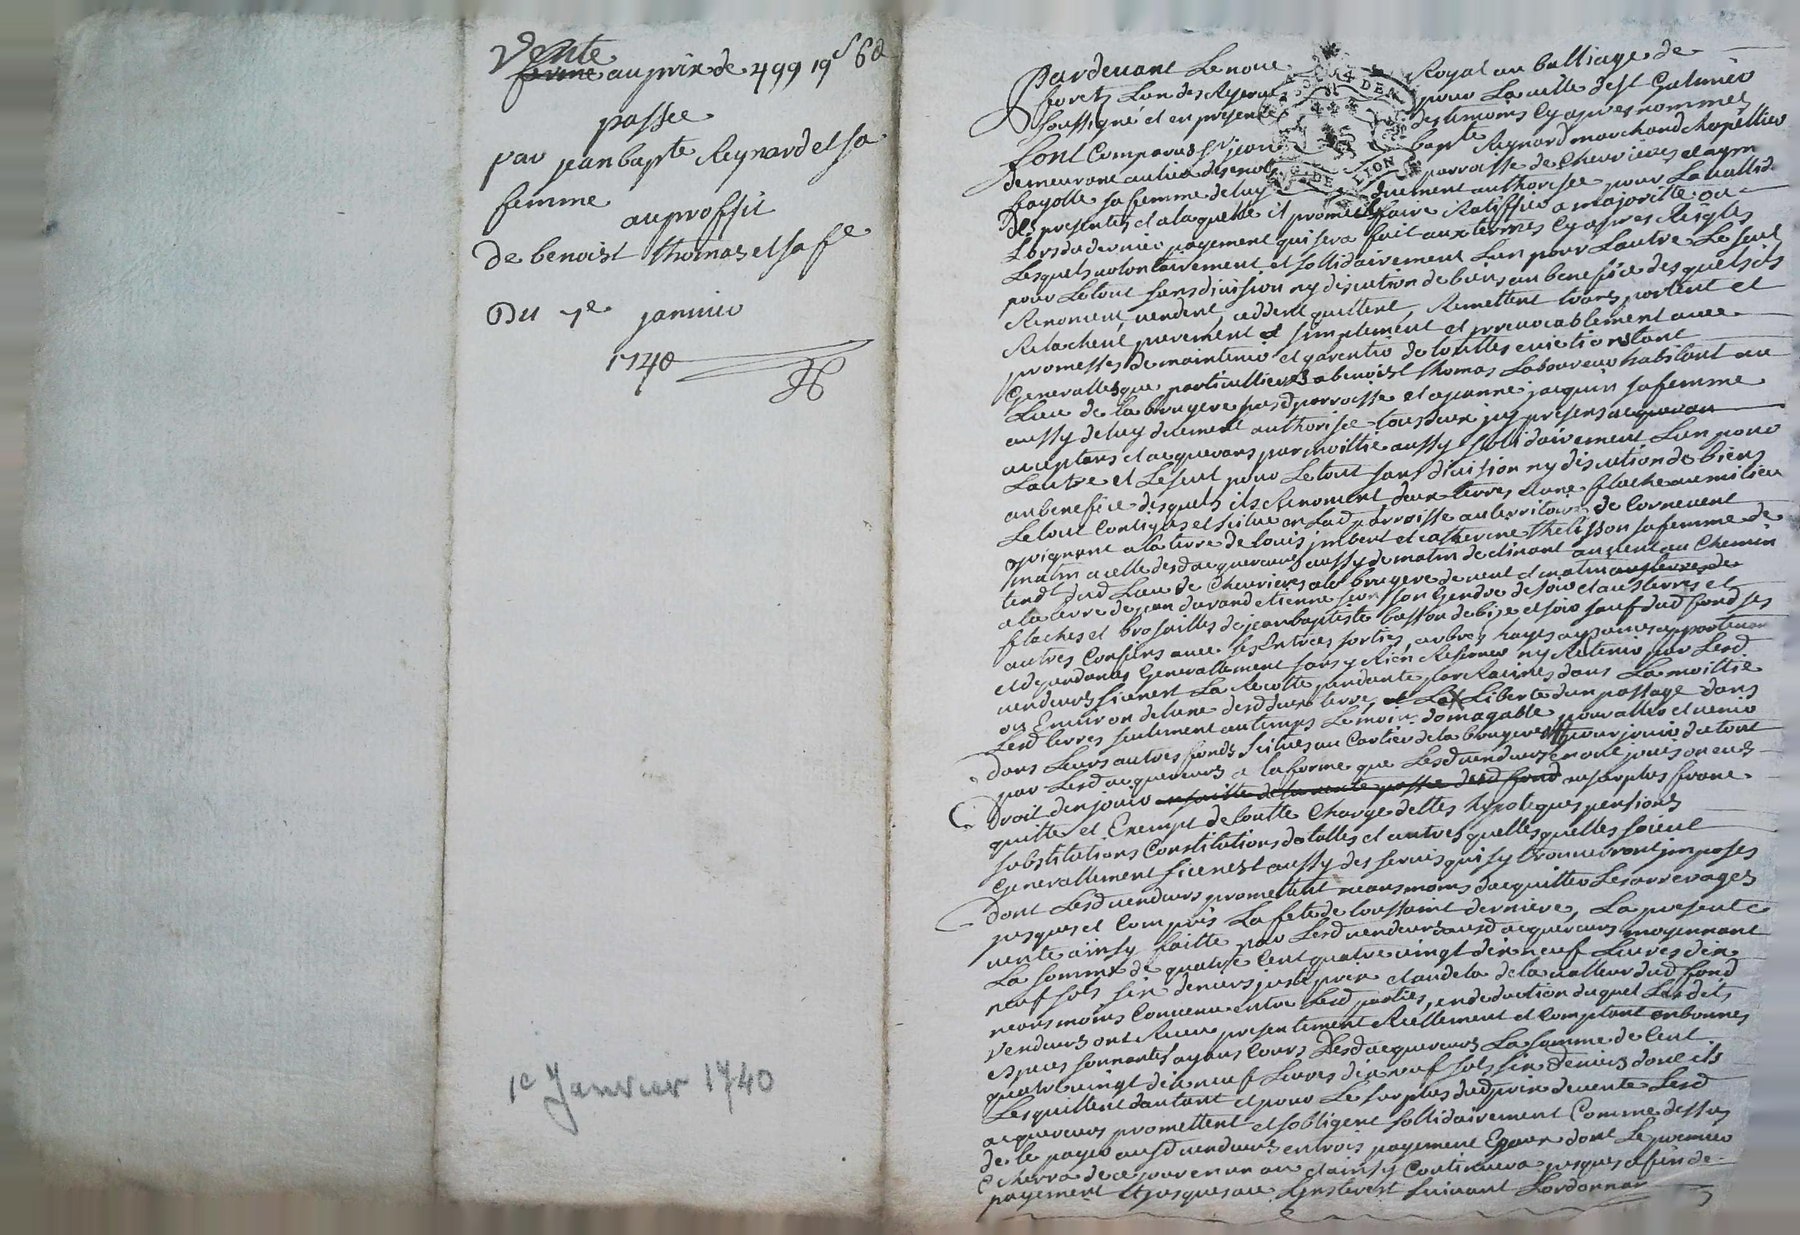 Vente
ferme au prix de 499 19s 6d
passee
par jean bapte Reynard et sa
femme
au proffit
de benoist thomas et sa fe
Du 1e janvier
1740
1e Janvier 1740
GEN DE LION
Pardevant Le no Royal au balliage de
forets Lun des Reserve pour La ville de st Galmier
soussigné et en presence des temoins cy apres nommes
font Comparus sr jean bapte Reynard marchand chapellier
demeurant au lieu parroisse de Chevrieres et
fayolle sa femme de luy duement authorisée pour La vallid
Des presentes et a laquelle il promet faire Ratiffier a majorité ou
Lors du dernier payement qui sera fait aux termes cy apres Resglés
Lesquels volontairement et sollidairement Lun pour Lautre Le seul
pour Le tout sans division ny discution de biens au benefice desquels ils
Renoncent, vendent, ceddent quittent, Remettent transportent et
Relachent purement et simplement et irrevocablement avec
promesses de maintenir et garentir de touttes evictions tant
Generalles que particullieres a benoist thomas Laboureur habitant au
Lieu de la bruyere parroisse et a jeanne jacquin sa femme
aussy de luy duement authorisée tous deux icy presens acqueran
acceptans et acquerans par moittié aussy sollidairement Lun pour
Lautre et Le seul pour Le tout sans division ny discution de biens
au benefice desquels ils Renoncent deux terres et une flache au milieu
Le tout Contigus et scitue en Lad parroisse au territoire de Cornevent
joignant a la terre de Louis jmbert et catherine thelisson sa femme de
matin a celle desd acquereurs aussy de matin declinant au vent au Chemin
tendt dud Lieu de Chevrieres a la bruyere de vent et matin aux terres de
a la terre de jean durand etienne son Gendre de soir et aux terres et
flaches et brosailles de jean baptiste basson de bize et soir sauf dud fond ses
autres Confins avec ses Entrées sorties, arbres, hayes aysances appartenan
et dependances Generallement sans y Rien Reserver ny Retenir par Lesd
vendeurs sicnest La Recolte pendante par Racines dans La moittié
ou Environ de lune desd deux terres, et La Liberté dun passage dans
Lesd terres seulement au temps Le moins domagable pour aller et venir
dans Leurs autres fonds scitués au Cartier de la bruyere pour jouir du tout
par Lesd acquereurs a la forme que Lesd vendeurs en ont joui ou eu
Droit den jouir ensuitte de la vente passée dud fond au surplus franc
quitte et Exempt de toutte Charge dettes hypoteques pensions
substitutions Constitutions dotalles et autres quelles quelles soient
Generallement sicnest aussy des servis qui sy trouveront jmposés
dont Lesd vendeurs promettent neansmoins dacquitter Les arrerages
jusques et Compris La fete de toussaint derniere, La presente
vente ainsy faitte par Lesd vendeurs ausd acquereurs moyennant
La somme de quatre Cent quatre vingt dix neuf Livres dix
neuf sols six deniers juste prix et au dela de la valleur dud fond
neansmoins Convenu entre Lesd parties, en deduction duquel Lesdits
vendeurs ont Receu presentement Reellement et Comptant en bonnes
especes sonnantes ayans Cours Desd acquereurs La somme de Cent
quatre vingt dix neuf Livres dix neuf sols six deniers dont ils
Les quittent dautant et pour Le surplus dud prix de vente Lesd
acquereurs promettent et sobligent sollidairement Comme dessus
de le payer ausd vendeurs en trois payement Egaux dont Le premier
Echerra de ce jour en un an et ainsy Continuera jusques a fin de
payement et jusques au suivant Lordonnan